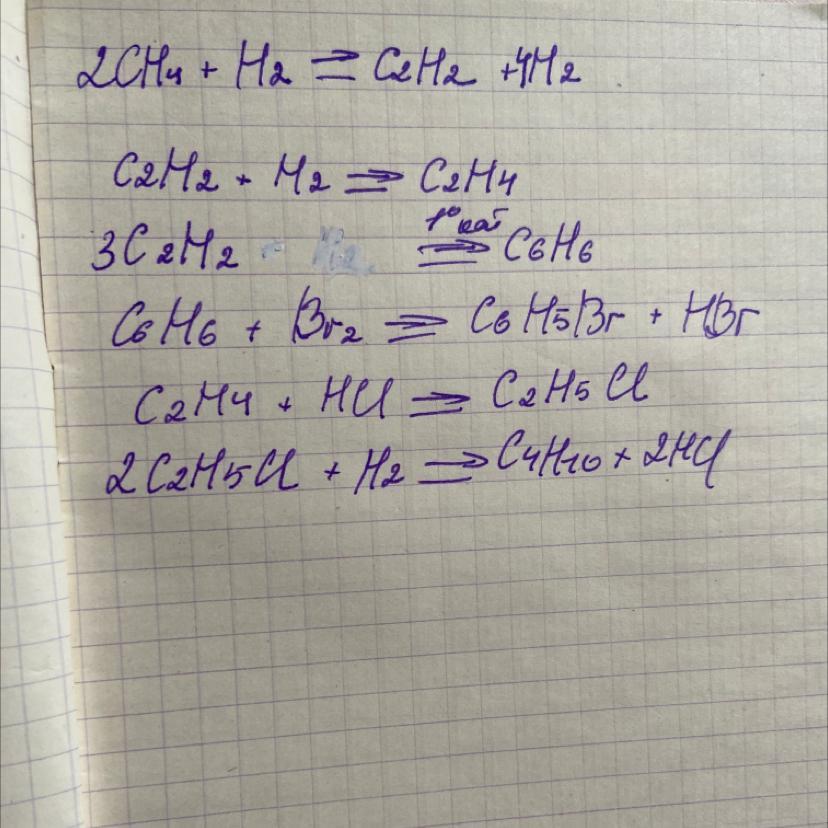 2CH4 + H2 ⇒ C2H2 + 4H2
C2H2 + H2 ⇒ C2H4
3C2H2 ⇒ t° кат C6H6
C6H6 + Br2 ⇒ C6H5Br + HBr
C2H4 + HCl ⇒ C2H5Cl
2C2H5Cl + H2 ⇒ C4H10 + 2HCl